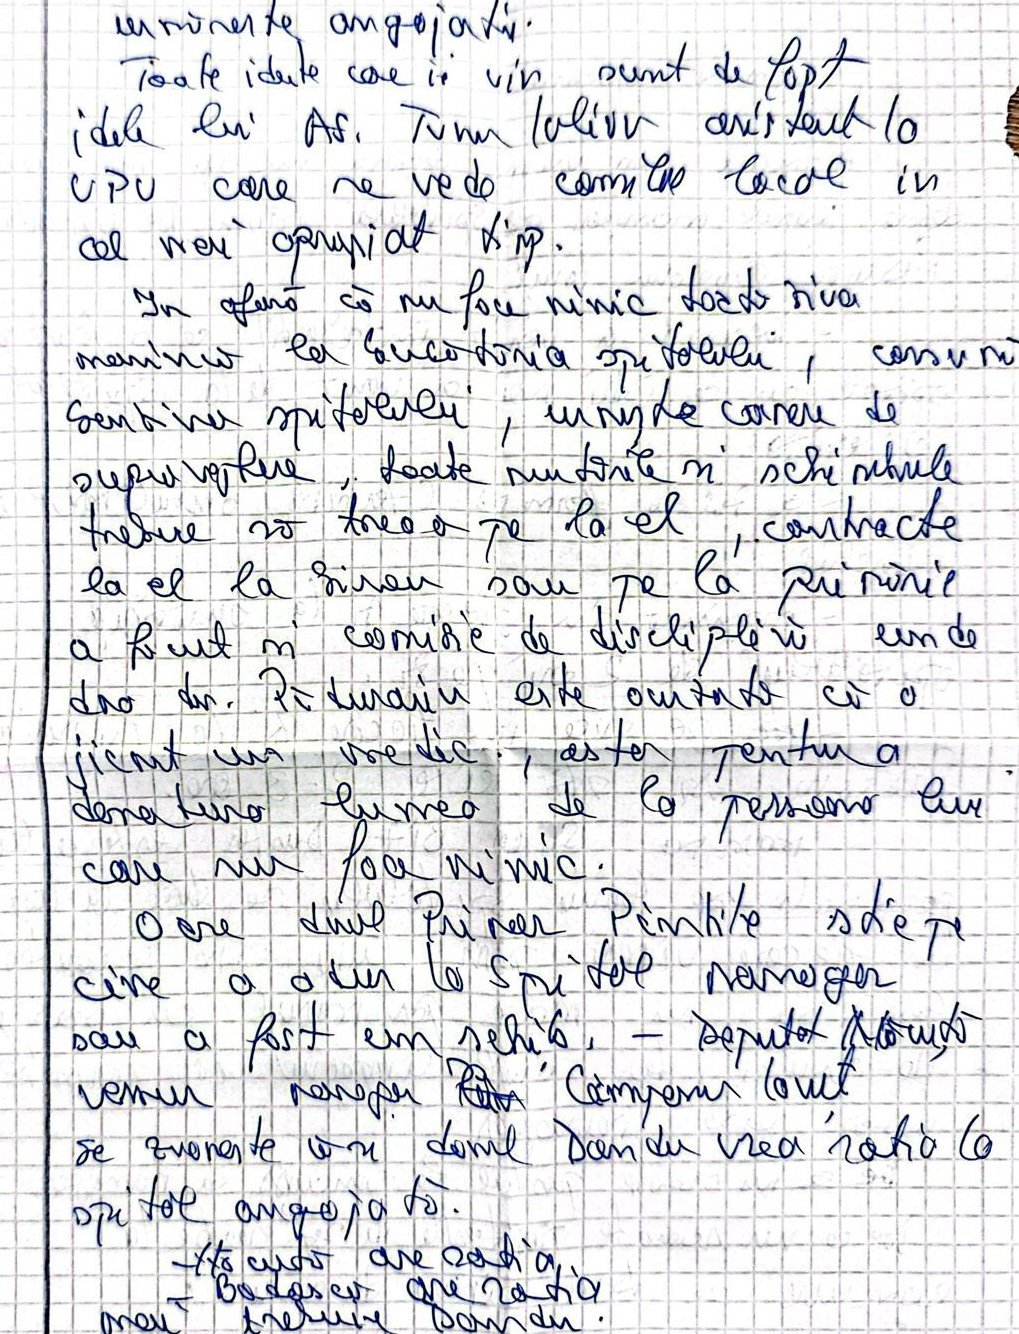 angajatii.
Toate ideile care ii vin sunt de fapt
idele lui As. Turnu Iulian asistent la
UPU care ne vede comitke local in
cel mai apropiat timp.
In afară că nu face nimic toată ziua
manincă la bucătăria spitalului, consumă
bentina spitalului, camere de
supraveghere, toate mutările si schimburile
trebuie să treacă pe la el, contracte
la el la birou sau pe la primărie
a făcut si comisie de discliplină unde
dna dr. este acuzată că a
jicnit un medic, asta pentru a
lumea de la persoana lui
care nu face nimic.
Oare dnul Primar Pimtilie stie pe
cine a adus la Spital manager
sau a fost un schimb. – Deputat
manager Câmpanu Ionut
se zvoneste că si domnul Dandu vrea soatia la
spital angajată.
are soatia
– Badascu are soatia
mai trebuie Dandu.